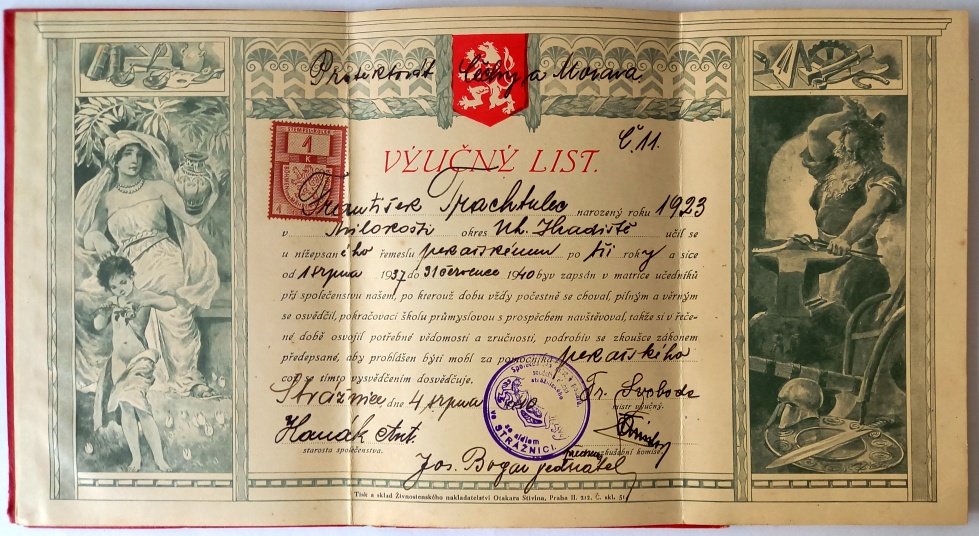 Protektorát Čechy a Morava.
STEMPEL-KOLEK
1
K
Č. 11.
VÝUČNÝ LIST.
František Trachtulec narozený roku 1923
v Milokošti okres Uh. Hradiště učil se
u nížepsaného řemeslu pekařskému po tři roky a sice
od 1 srpna 1937 do 31 července 1940 byv zapsán v matrice učedníků
při společenstvu našem, po kterouž dobu vždy počestně se choval, pilným a věrným
se osvědčil, pokračovací školu průmyslovou s prospěchem navštěvoval, takže si v řeče-
né době osvojil potřebné vědomosti a zručnosti, podrobiv se zkoušce zákonem
předepsané, aby prohlášen býti mohl za pomocníka pekařského
což se tímto vysvědčením dosvědčuje.
Strážnice dne 4 srpna 1940
Fr. Svoboda
mistr výučný.
Hanák Ant.
starosta společenstva.
zkušební komise.
se sídlem
ve STRÁŽNICI.
Jos. Bogar jednatel
Tisk a sklad Živnostenského nakladatelství Otakara Štivína, Praha II. 212. Č. skl. 51